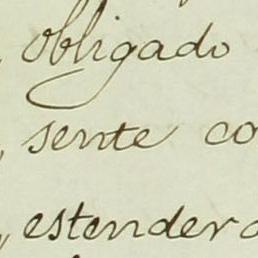 obligado
sente co
estender